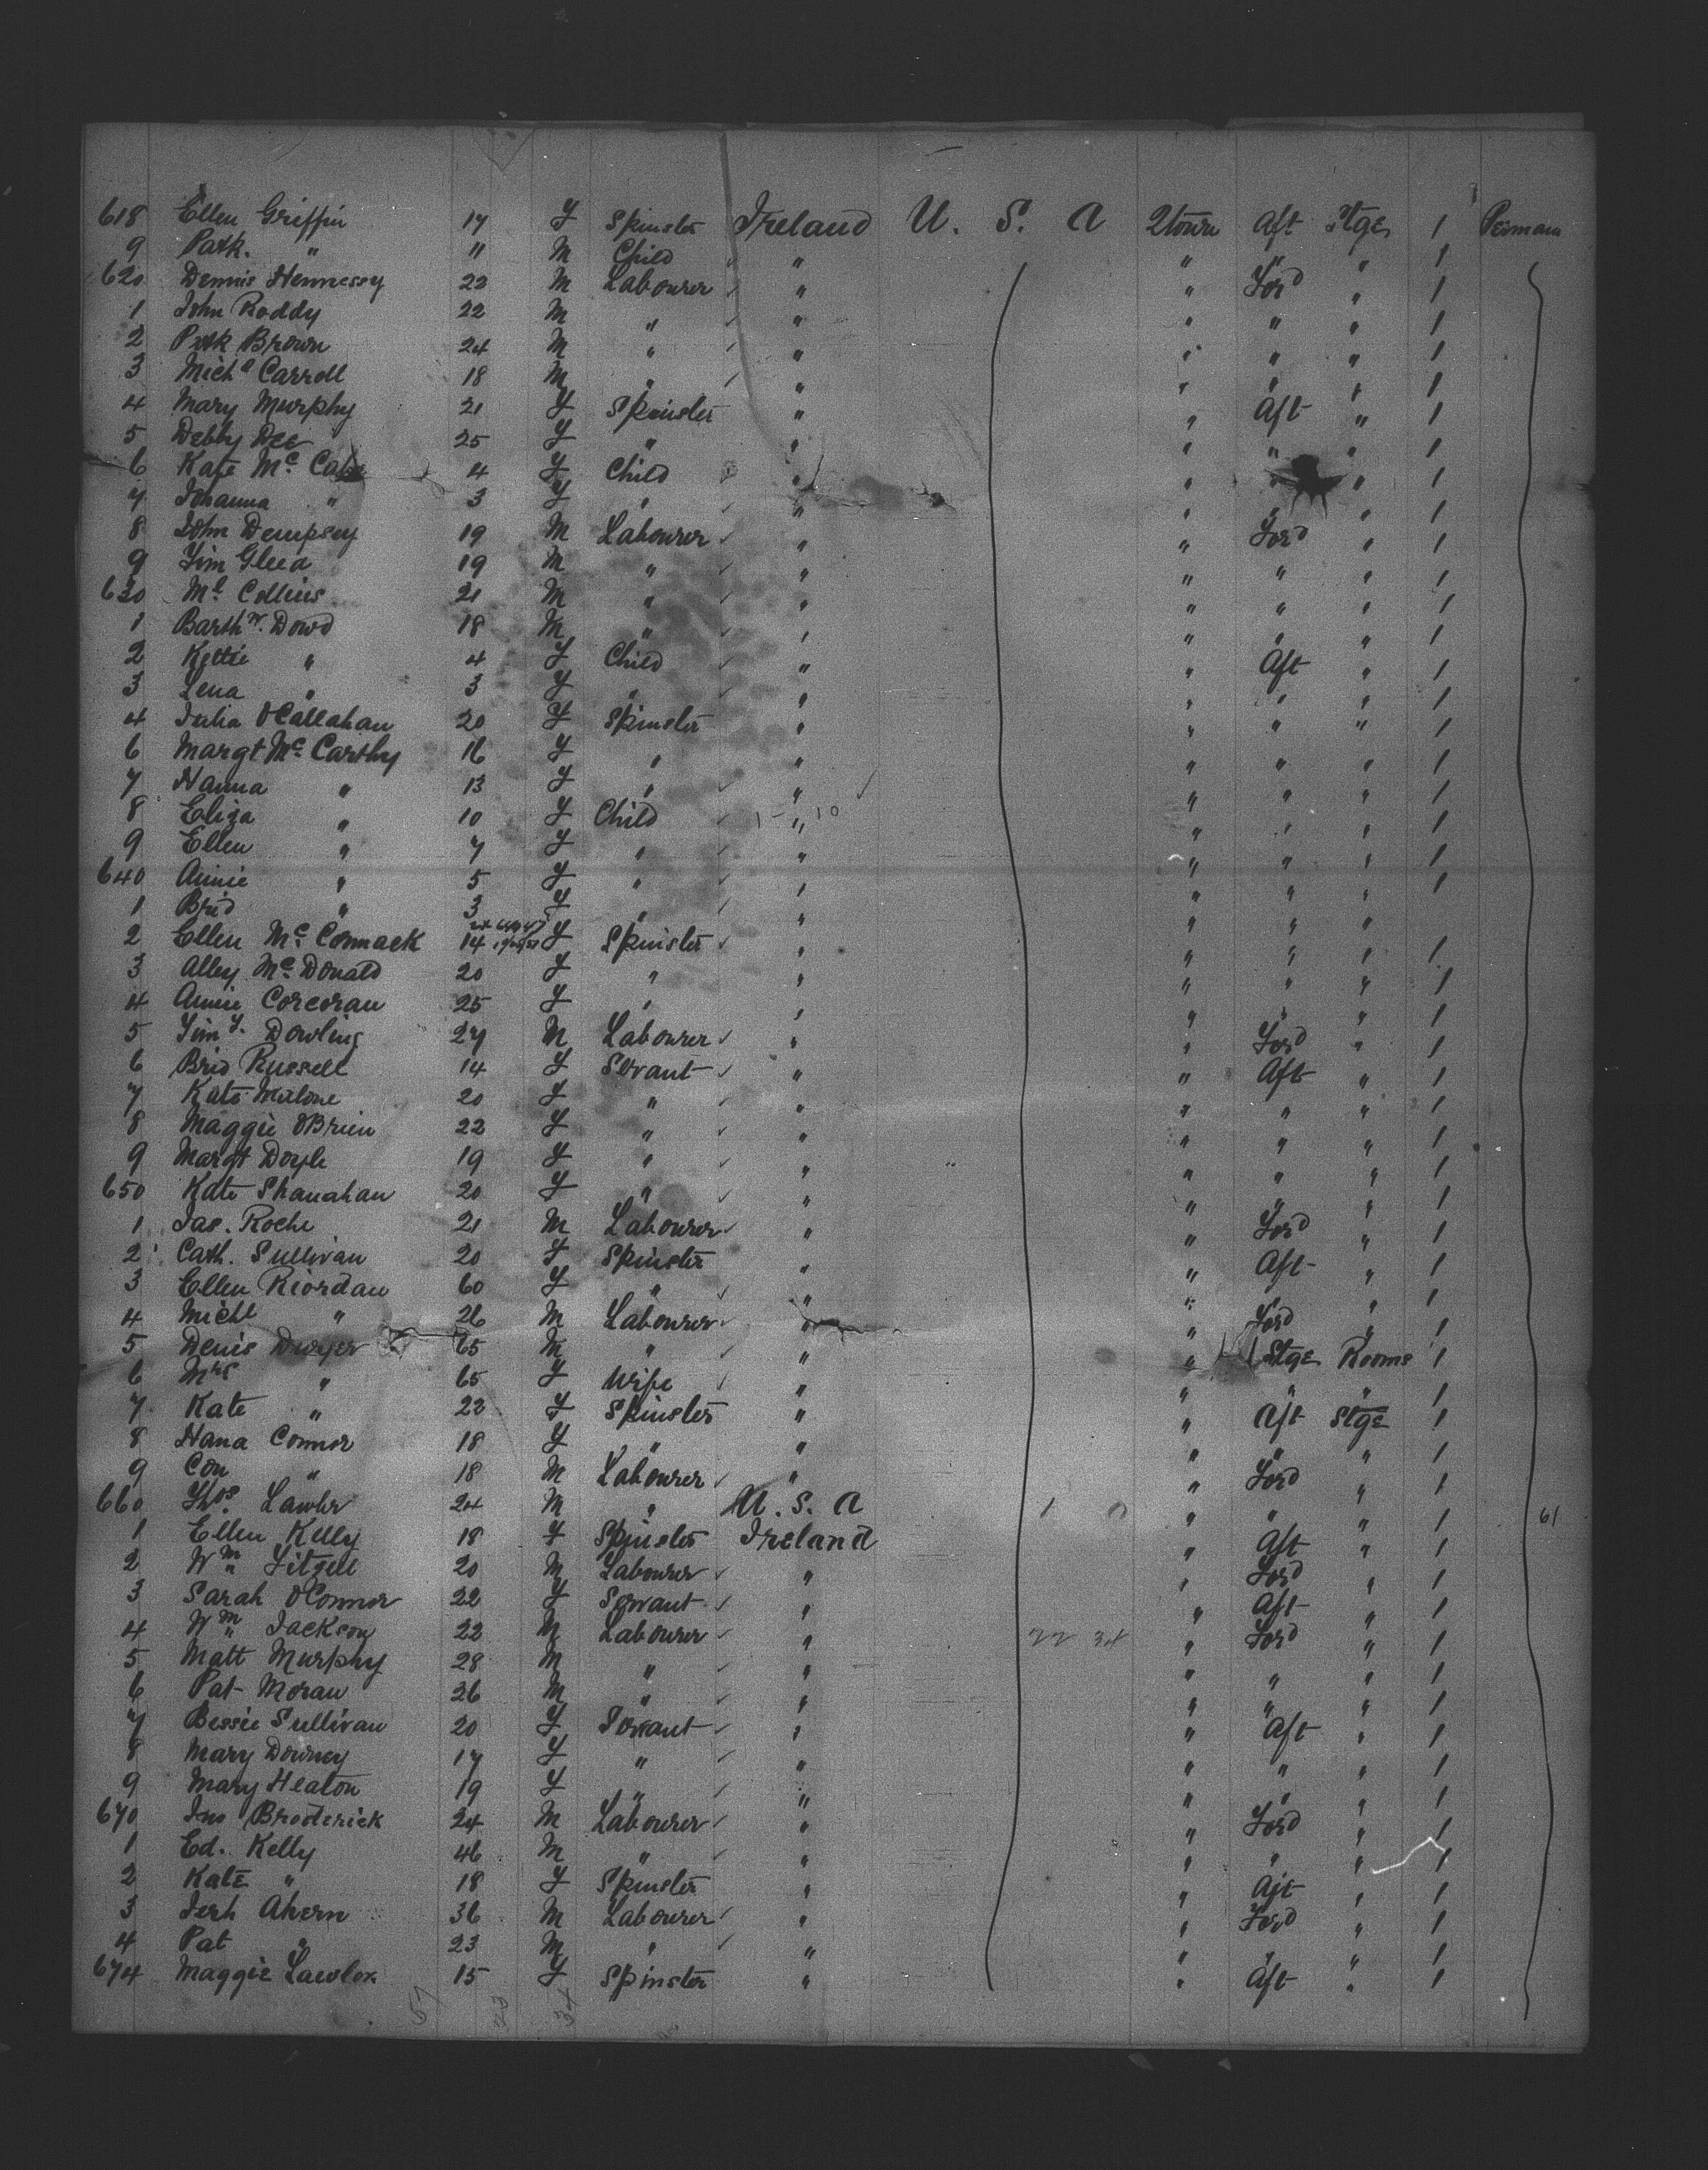 618 Ellen Griffin 17 F Spinster Ireland U. S. A Qtown Aft Stge 1 Perman
9 Patk. " 11 M Child " " " " 1
620 Dennis Hennessy 22 M Labourer " " Ford " 1
1 John Roddy 22 M " " " " " 1
2 Patk Brown 24 M " " " " " 1
3 Michl Carroll 18 M " " " " " 1
4 Mary Murphy 21 F Spinster " " Aft " 1
5 Debby Dee 25 F " " " " " 1
6 Kate Mc Cabe 4 F Child " " " " 1
7 Johanna " 3 F " " " " " 1
8 John Dempsey 19 M Labourer " " Ford " 1
9 Tim Gleea 19 M " " " " " 1
630 Ml Collins 21 M " " " " " 1
1 Barthw. Dowd 18 M " " " " " 1
2 Kettie " 4 F Child " " Aft " 1
3 Lena " 3 F " " " " " 1
4 Julia O'Callahan 20 F Spinster " " " " 1
6 Margt Mc Carthy 16 F " " " " " 1
7 Hanna " 13 F " " " " " 1
8 Eliza " 10 F Child 1 - " 10 " " " 1
9 Ellen " 7 F " " " " " 1
640 Annie " 5 F " " " " " 1
1 Brid " 3 F " " " " "
2 Ellen Mc Cormack 14 F Spinster " " " " 1
3 Alley Mc Donald 20 F " " " " " 1
4 Annie Corcoran 25 F " " " " " 1
5 Timy. Dowling 27 M Labourer " " Ford " 1
6 Brid Russell 14 F Servant " " Aft " 1
7 Kate Malone 20 F " " " " " 1
8 Maggie O'Brien 22 F " " " " " 1
9 Margt Doyle 19 F " " " " " 1
650 Kate Shanahan 20 F " " " " " 1
1 Jas. Roche 21 M Labourer " " Ford " 1
2 Cath. Sullivan 20 F Spinster " " Aft " 1
3 Ellen Riordan 60 F " " " " " 1
4 Michl " 26 M Labourer " " Ford " 1
5 Denis Dwyer 65 M " " " Stge Rooms 1
6 Mrs " 65 F Wife " " " " 1
7 Kate " 22 F Spinster " " Aft Stge 1
8 Hana Connor 18 F " " " " " 1
9 Con " 18 M Labourer " " Ford " 1
660 Thos Lawler 24 M " U. S. A 1 0 " " " 1 61
1 Ellen Kelly 18 F Spinster Ireland " Aft " 1
2 Wm Fitzell 20 M Labourer " " Ford " 1
3 Sarah O'Connor 22 F Servant " " Aft " 1
4 Wm Jackson 22 M Labourer " 22 34 " Ford " 1
5 Matt Murphy 28 M " " " " " 1
6 Pat Moran 26 M " " " " " 1
7 Bessie Sullivan 20 F Servant " " Aft " 1
8 Mary Downey 17 F " " " " " 1
9 Mary Heaton 19 F " " " " " 1
670 Jno Broderick 24 M Labourer " " Ford " 1
1 Ed. Kelly 46 M " " " " " 1
2 Kate " 18 F Spinster " " Aft " 1
3 Jerh Ahern 36 M Labourer " " Ford " 1
4 Pat " 23 M " " " " " 1
674 Maggie Lawlor 15 F Spinster " " Aft " 1
57 23 34